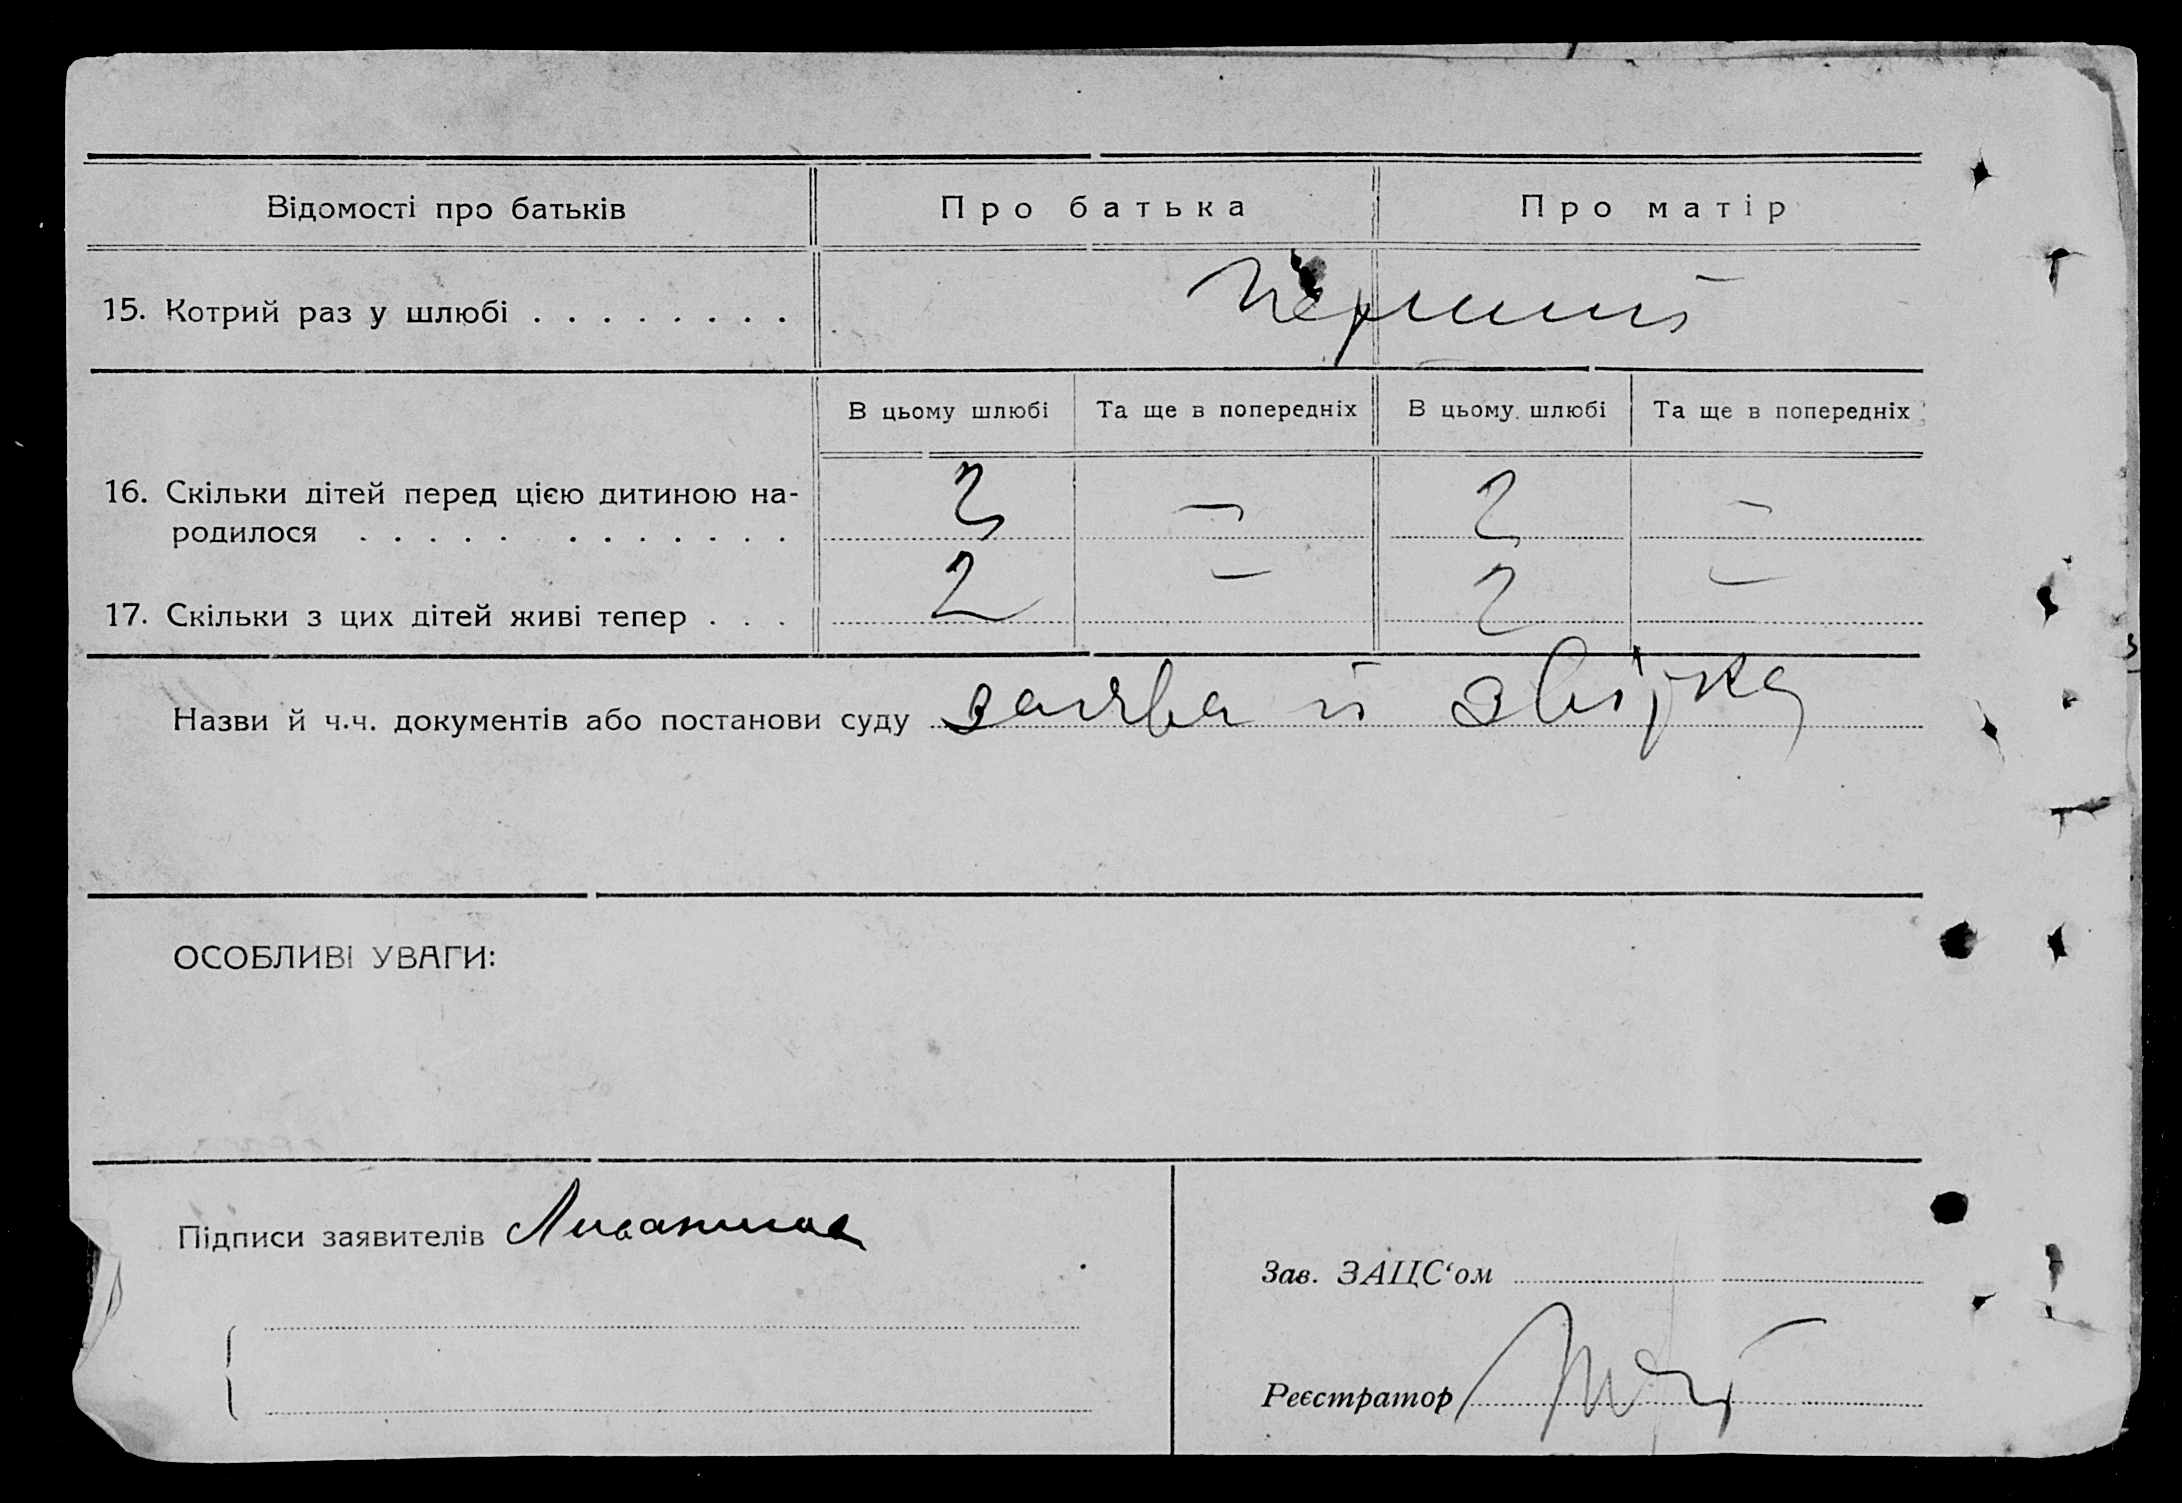 Відомості про батьків
Про батька
Про матір
15. Котрий раз у шлюбі . . . . . . . .
перший
В цьому шлюбі
Та ще в попередніх
В цьому шлюбі
Та ще в попередніх
16. Скільки дітей перед цією дитиною на-
родилося . . . . . . . . . . . .
2 — 2 —
17. Скільки з цих дітей живі тепер . . .
2 — 2 —
Назви й ч.ч. документів або постанови суду заява й звірка
ОСОБЛИВІ УВАГИ:
Підписи заявителів
Зав. ЗАЦС‘ом
Реєстратор